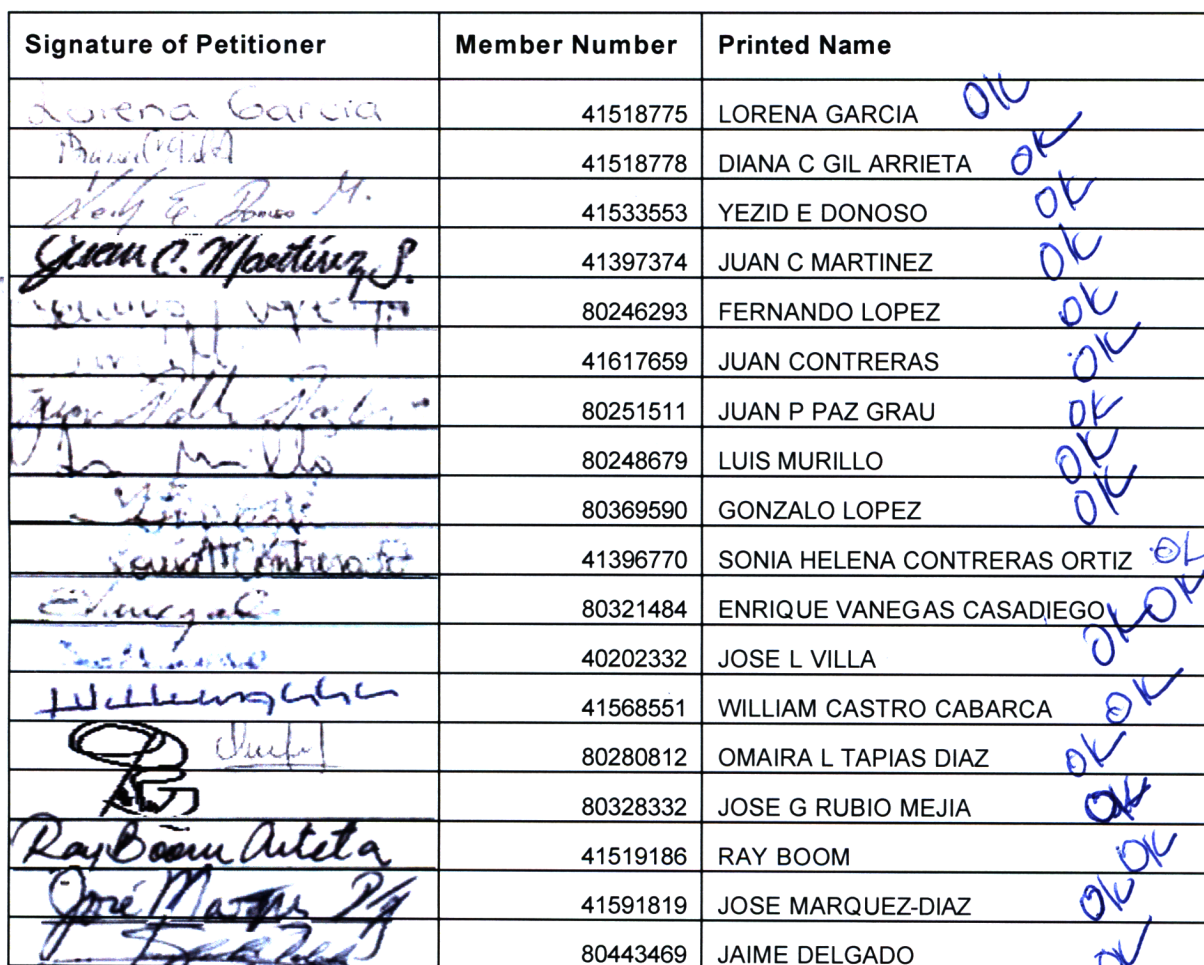 Signature of Petitioner Member Number Printed Name
Lorena Garcia 41518775 LORENA GARCIA OK
41518778 DIANA C GIL ARRIETA OK
41533553 YEZID E DONOSO OK
Juan C. Martínez S. 41397374 JUAN C MARTINEZ OK
80246293 FERNANDO LOPEZ OK
41617659 JUAN CONTRERAS OK
80251511 JUAN P PAZ GRAU OK
80248679 LUIS MURILLO OK
80369590 GONZALO LOPEZ OK
41396770 SONIA HELENA CONTRERAS ORTIZ
80321484 ENRIQUE VANEGAS CASADIEGO OK
40202332 JOSE L VILLA OK
41568551 WILLIAM CASTRO CABARCA OK
80280812 OMAIRA L TAPIAS DIAZ OK
80328332 JOSE G RUBIO MEJIA OK
Ray Boom Arteta 41519186 RAY BOOM OK
José Marquez 41591819 JOSE MARQUEZ-DIAZ OK
80443469 JAIME DELGADO OK